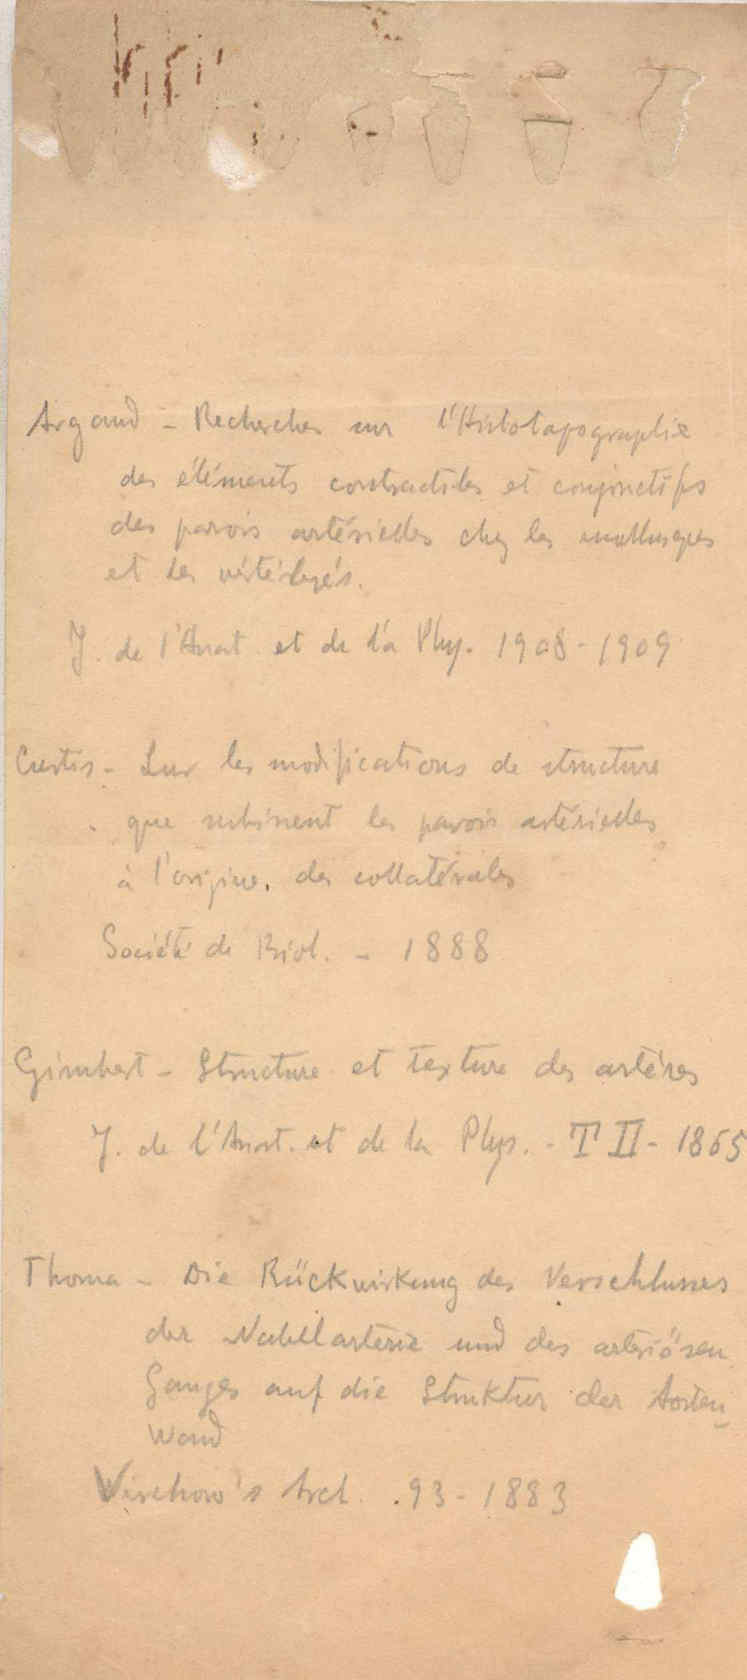 Argaud - Recherches sur l'Histotopographie
des éléments contractiles et conjonctifs
des parois artérielles chez les mollusques
et les vértébrés.
J. de l'Anat. et de la Phy. 1908-1909
Curtis - Sur les modifications de structure
que subissent les parois artérielles
à l'origine des collatérales
Société de Biol. - 1888
Gimbert - Structure et texture des artères
J. de l'Anat. et de la Phys. - T II - 1865
Thoma - Die Rückwirkung des Verschlusses
der Nabelarterie und des arteriösen
Ganges auf die Struktur der Aorten
wand
Virchow's Arch. 93 - 1883